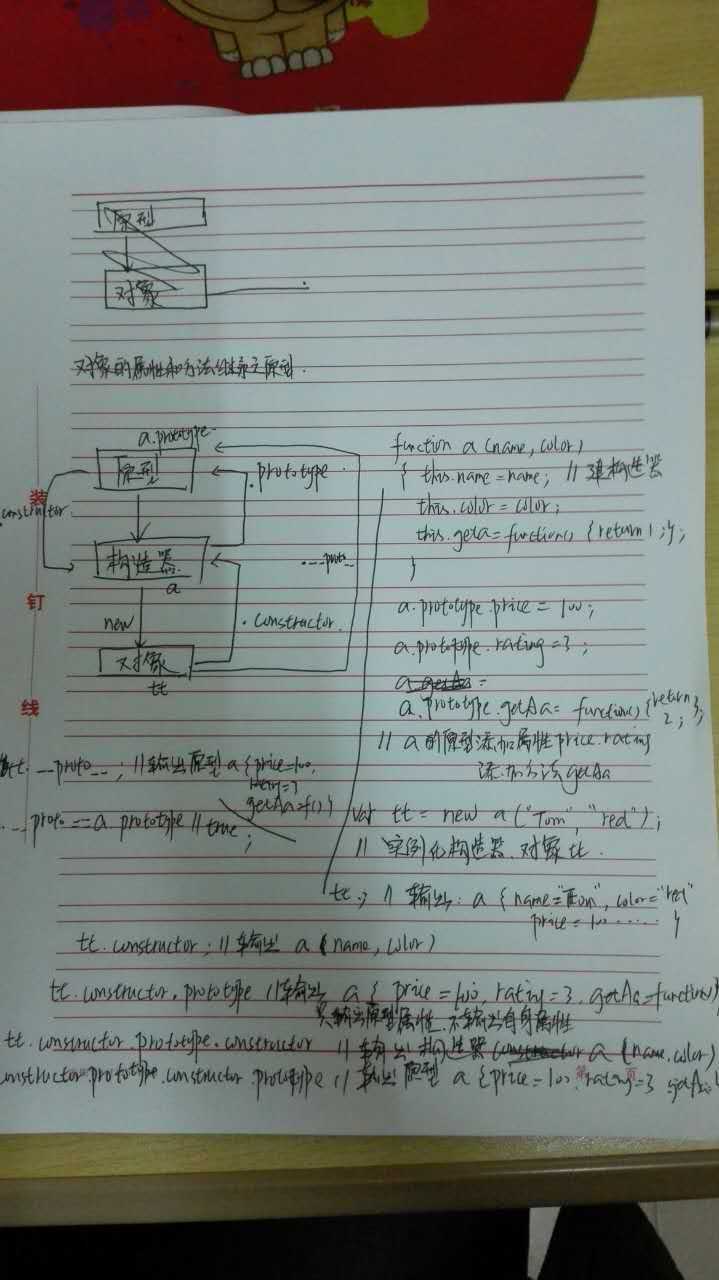 原型
对象
对象的属性和方法继承之原型.
a.prototype
原型
.prototype
constructor
构造器
a
.__proto__
new
.constructor
对象
tt
装
钉
线
function a (name, color)
{ this.name = name; // 建构造器
this.color = color;
this.geta = function() {return 1;};
}
a.prototype.price = 100;
a.prototype.rating = 3;
a.prototype.getAa = function() {return 2;};
// a的原型添加属性price.rating
添加方法getAa
var tt = new a ("Tom", "red");
// 实例化构造器.对象tt.
tt.; // 输出: a { name="Tom", color="red"
price=100 ...... }
tt.__proto__; // 输出原型a {price=100,
rating=3
getAa=f()}
.__proto__ == a.prototype // true;
tt.constructor; // 输出 a (name, color)
tt.constructor.prototype // 输出 a { price=100, rating=3. getAa=function()}
只输出原型属性.不输出自身属性
tt.constructor.prototype.constructor // 输出构造器 a (name.color)
onstructor.prototype.constructor.prototype // 输出原型 a {price=100 rating=3 getAa